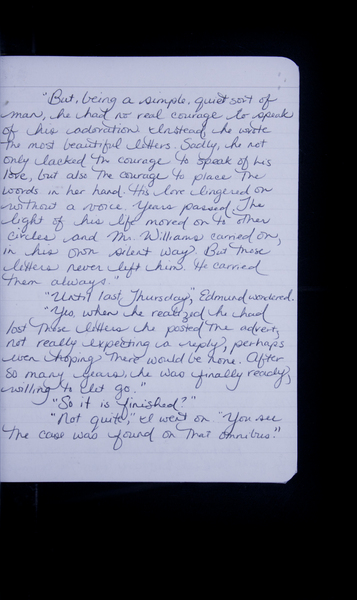 "But, being a simple, quiet sort of
man, he had no real courage to speak
of his adoration. Instead, he wrote
the most beautiful letters. Sadly, he not
only lacked the courage to speak of his
love, but also the courage to place the
words in her hand. His love lingered on
without a voice. Years passed. The
light of his life moved on to other
circles and Mr. Williams carried on,
in his own silent way. But those
letters never left him. He carried
them always."
"Until last Thursday," Edmund wondered.
"Yes, when he realized he had
lost those letters he posted the advert,
not really expecting a reply, perhaps
even hoping there would be none. After
so many years, he was finally ready,
willing to let go."
"So it is finished?"
"Not quite," I went on. "You see
the case was found on that omnibus."